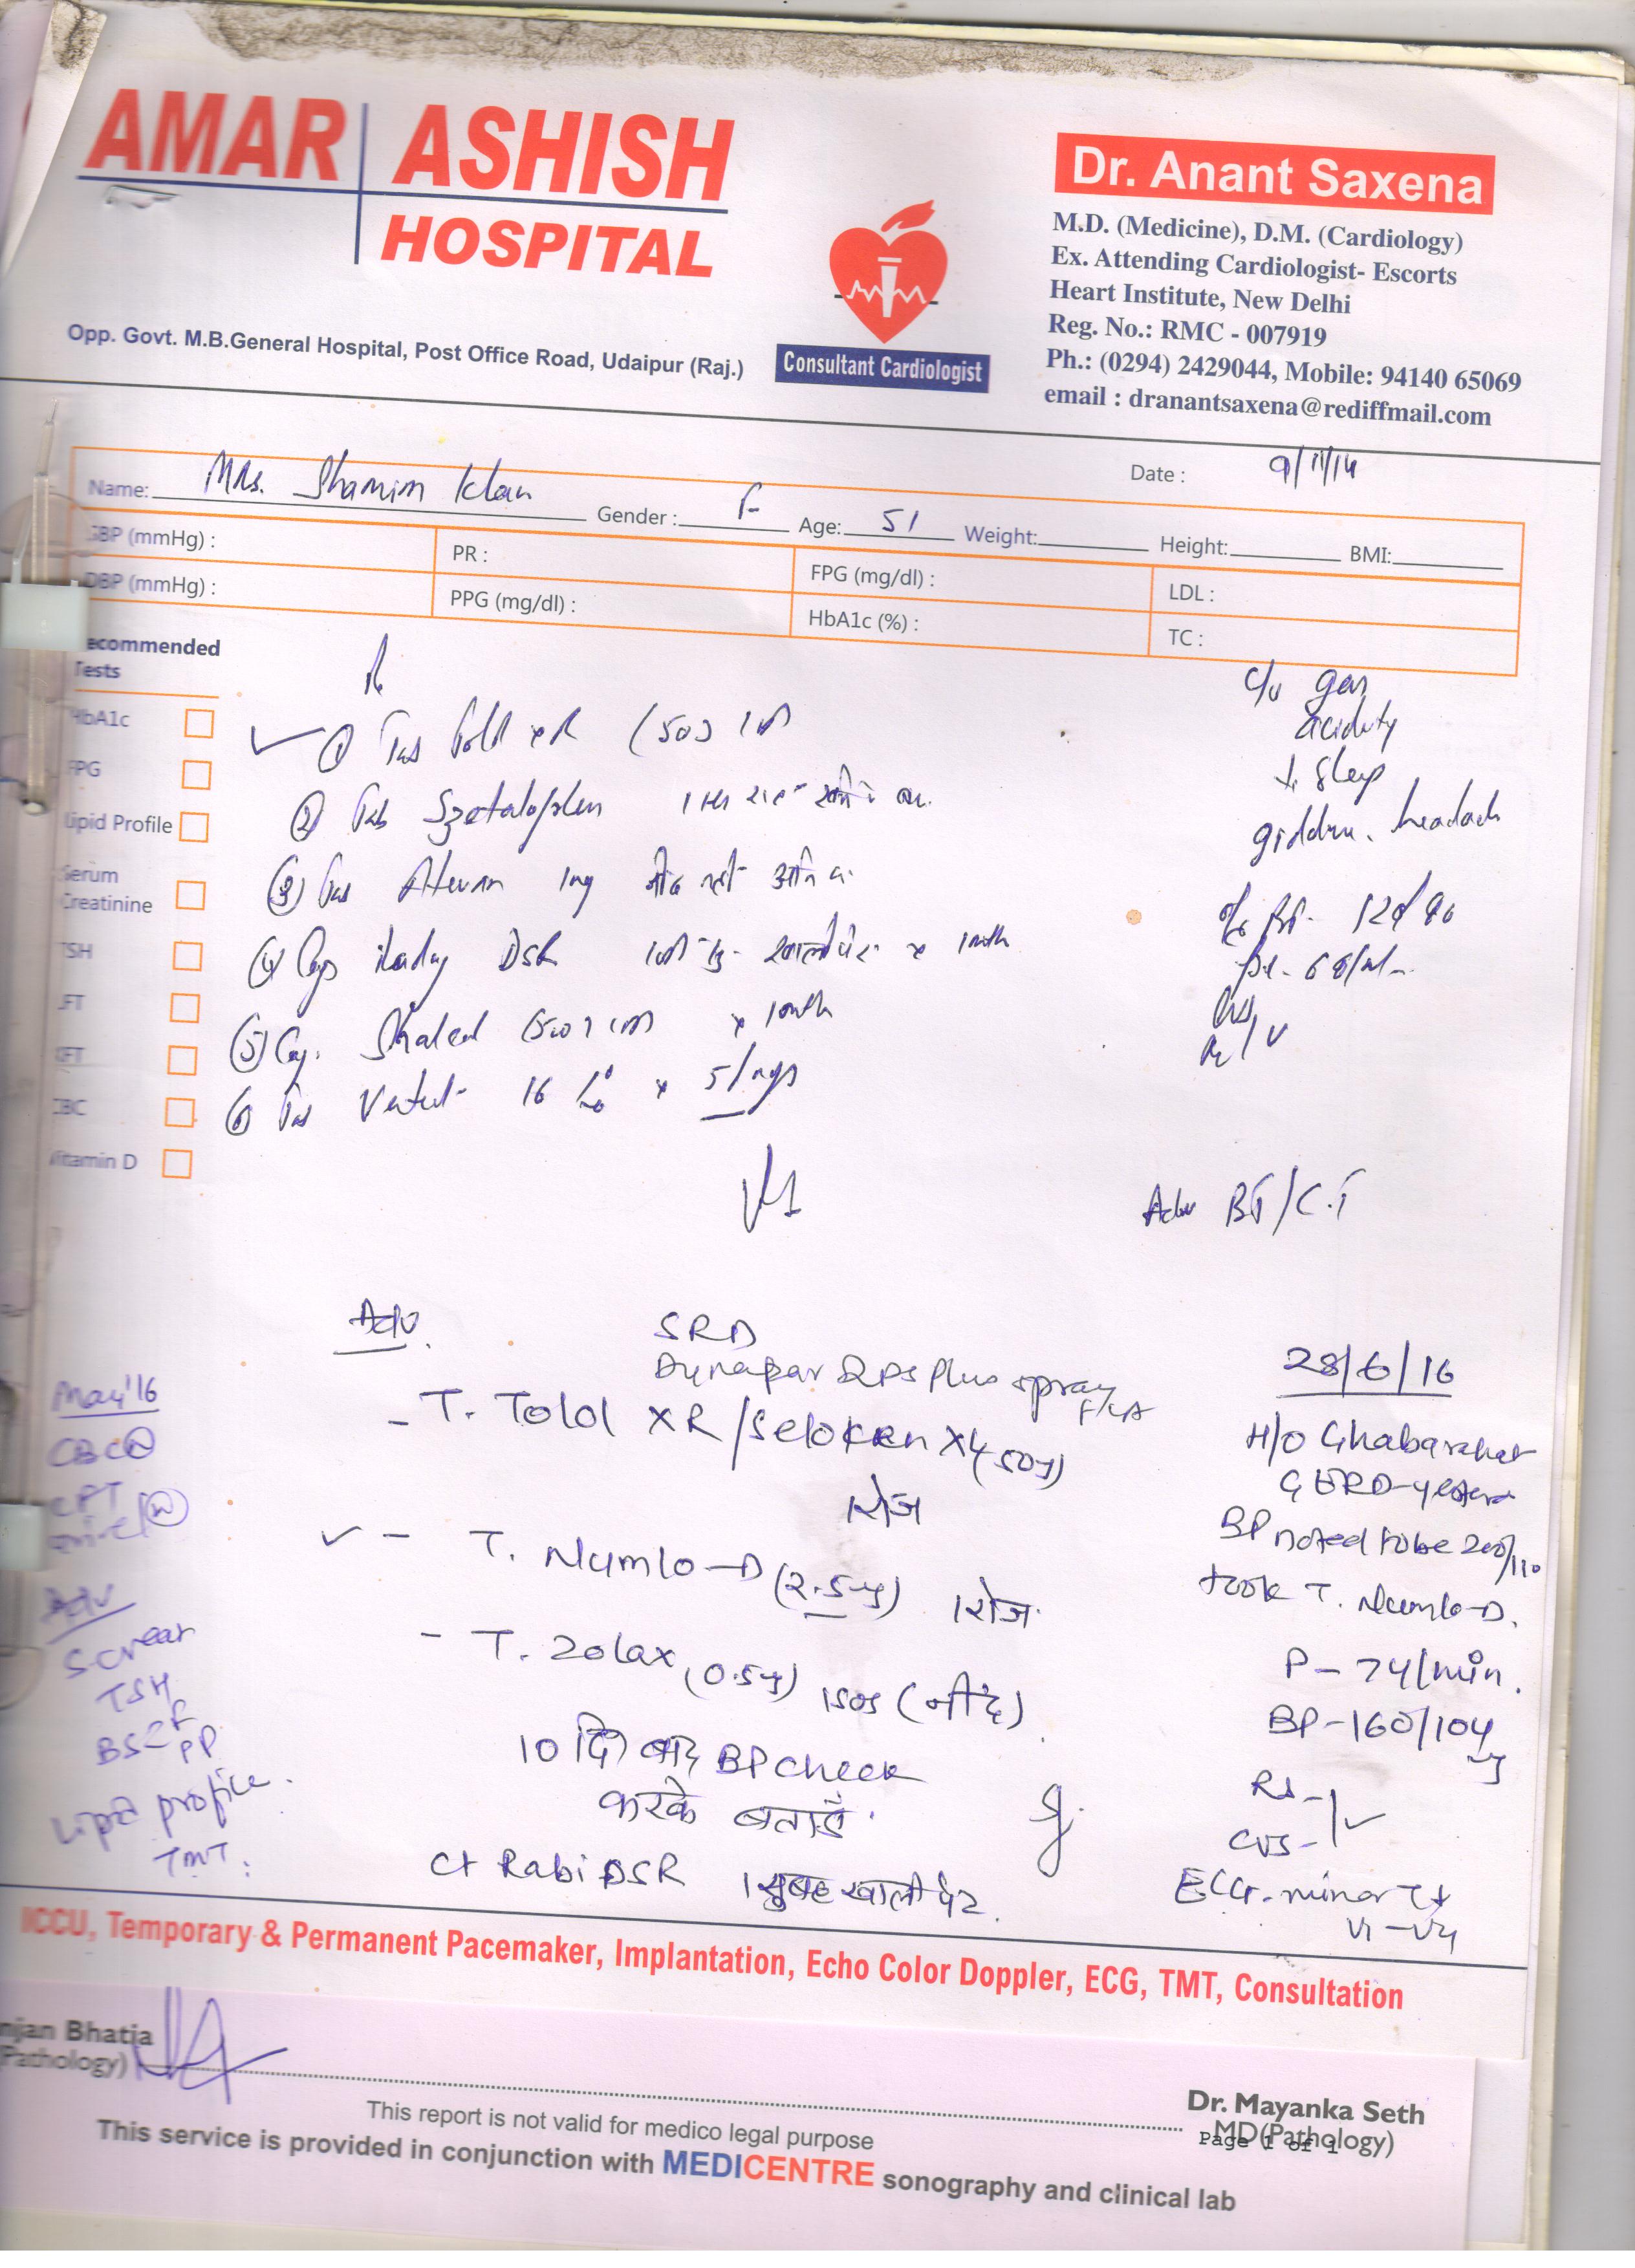 AMAR ASHISH
HOSPITAL
Opp. Govt. M.B.General Hospital, Post Office Road, Udaipur (Raj.)
Consultant Cardiologist
Dr. Anant Saxena
M.D. (Medicine), D.M. (Cardiology)
Ex. Attending Cardiologist- Escorts
Heart Institute, New Delhi
Reg. No.: RMC - 007919
Ph.: (0294) 2429044, Mobile: 94140 65069
email : dranantsaxena@rediffmail.com
Date : 9/11/14
Name: Mrs. Shamim Khan Gender : F Age: 51 Weight: Height: BMI:
SBP (mmHg) : PR : FPG (mg/dl) : LDL :
DBP (mmHg) : PPG (mg/dl) : HbA1c (%) : TC :
ecommended
Tests
HbA1c
FPG
Lipid Profile
Serum
Creatinine
TSH
LFT
KFT
CBC
Vitamin D
① Tab Told XR (50)
② Tab Szetalo
③ Tab Ativan 1mg
④ Cap DSR x 1 month
⑤ Cap. x 1 month
⑥ Tab Vertut 16 x 5 days
c/o gas
acidity
↓ Sleep
headache
BP- 120/90
Adv BT/C.T
Adv.
SRD
Dynapar QPS Plus spray
- T. Tolol XR/Seloken XL (50mg)
1 रोज
- T. Numlo-D (2.5mg) 1 रोज
- T. Zolax (0.5mg) 1 SOS (नींद)
10 दिन बाद BP check
करके बताऐं
Ct Rabi DSR 1 सुबह खाली पेट
28/6/16
H/o Ghabarahat
GERD-
BP noted to be 200/110
took T. Numlo-D.
P- 74/min.
BP-160/104
RS-
CVS-
ECG- minor T↓
V1-V4
May'16
CBC (N)
Adv
S creat
TSH
BS F
PP
Lipid profile.
TMT.
ICCU, Temporary & Permanent Pacemaker, Implantation, Echo Color Doppler, ECG, TMT, Consultation
njan Bhatia
Pathology)
Dr. Mayanka Seth
MD(Pathology)
Page 1 of 1
This report is not valid for medico legal purpose
This service is provided in conjunction with MEDICENTRE sonography and clinical lab